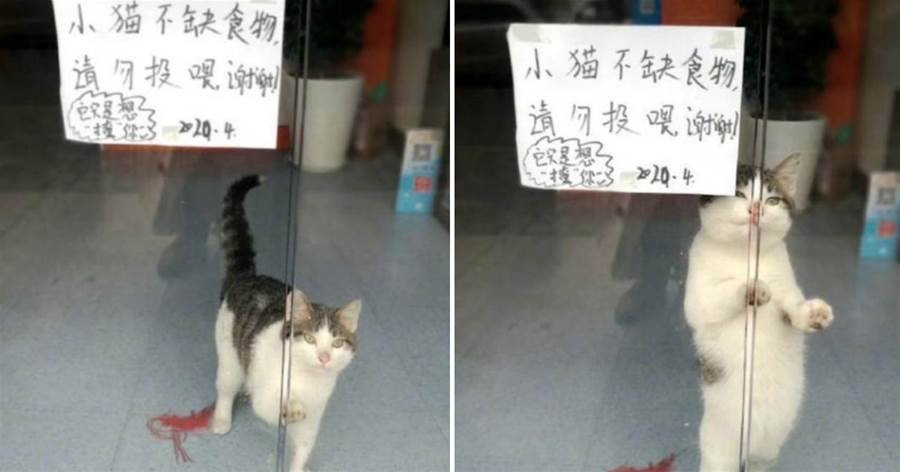 小猫不缺食物,
请勿投喂,谢谢!
它只是想
"撩"你
2020.4.
小猫不缺食物,
请勿投喂,谢谢!
它只是想
"撩"你
2020.4.